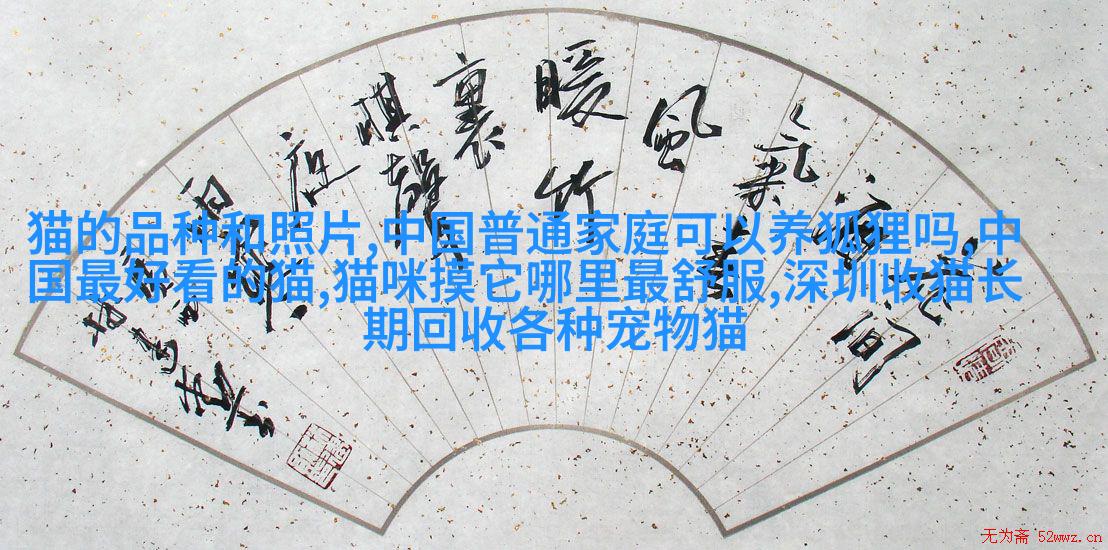 猫的品种和照片,中国普通家庭可以养狐狸吗,中
国最好看的猫,猫咪摸它哪里最舒服,深圳收猫长
期回收各种宠物猫
花間
酒
氣春
風
暖竹
裏
棋聲
夜
雨寒
无为斋 52wwz.cn